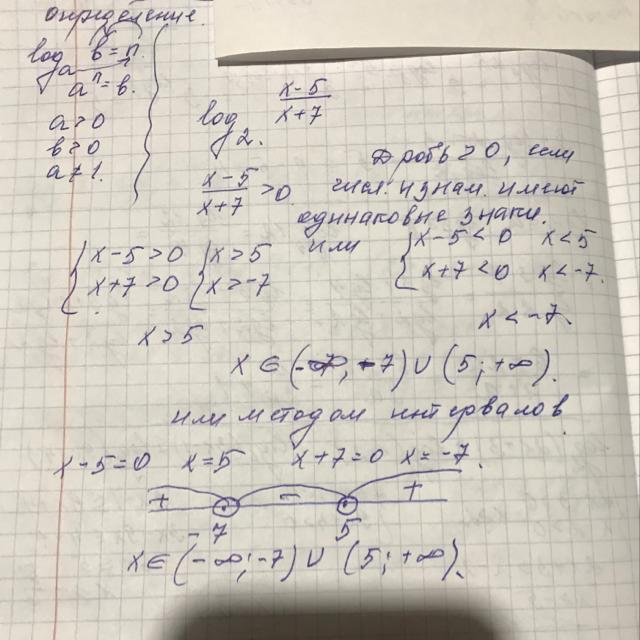 определение.
log a b = n.
aⁿ = b.
a > 0
b > 0
a ≠ 1.
log 2. x-5/x+7
x-5/x+7 > 0
Дробь > 0, если
числ. и знам. имеют
одинаковые знаки.
{ x-5 > 0 { x > 5 или { x-5 < 0 x < 5
x+7 > 0 x > -7 x+7 < 0 x < -7.
x > 5
x < -7.
x ∈ (-∞; -7) ∪ (5; +∞).
или методом интервалов.
x-5=0 x=5 x+7=0 x=-7.
+ - +
-7 5
x ∈ (-∞; -7) ∪ (5; +∞).